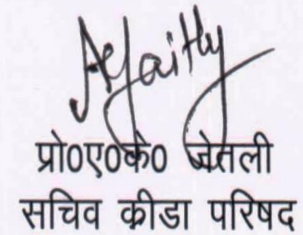 AKJaitly
प्रो०ए०के० जेतली
सचिव क्रीडा परिषद